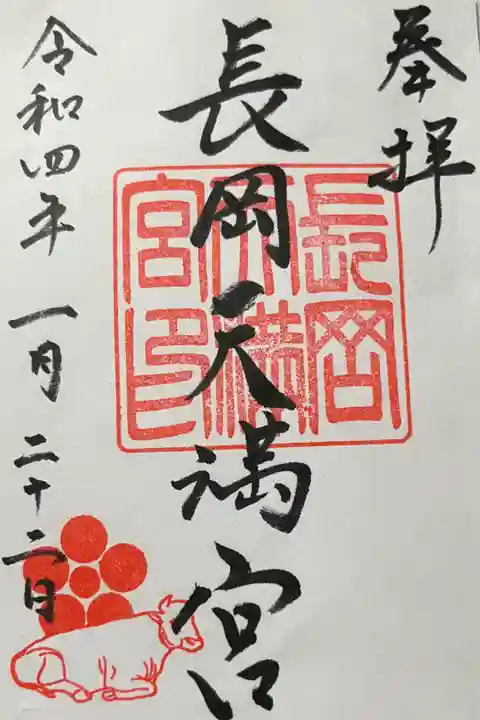 奉拝
長岡天満宮
長岡
天満
宮印
令和四年 一月 二十二日